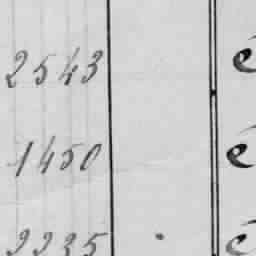 2543 é
1450 é
2235 é